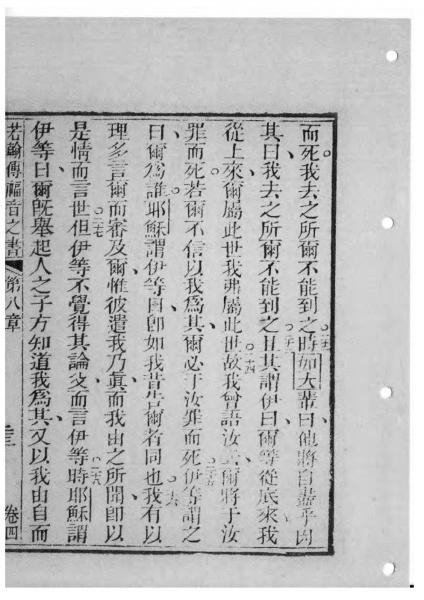 而死我去之所爾不能到之時如大輩曰他將自盡乎因
其曰我去之所爾不能到之且其謂伊曰爾等從底來我
從上來爾屬此世我弗屬此世故我曾語汝云爾將于汝
罪而死若爾不信以我為其爾必于汝罪而死伊等謂之
曰爾為誰耶穌謂伊等曰即如我昔告爾者同也我有以
理多言爾而審及爾惟彼遣我乃真而我由之所聞即以
是情而言世但伊等不覺得其論父而言伊等時耶穌謂
伊等曰爾既舉起人之子方知道我為其又以我由自而
若翰傳福音之書 第八章 卷四